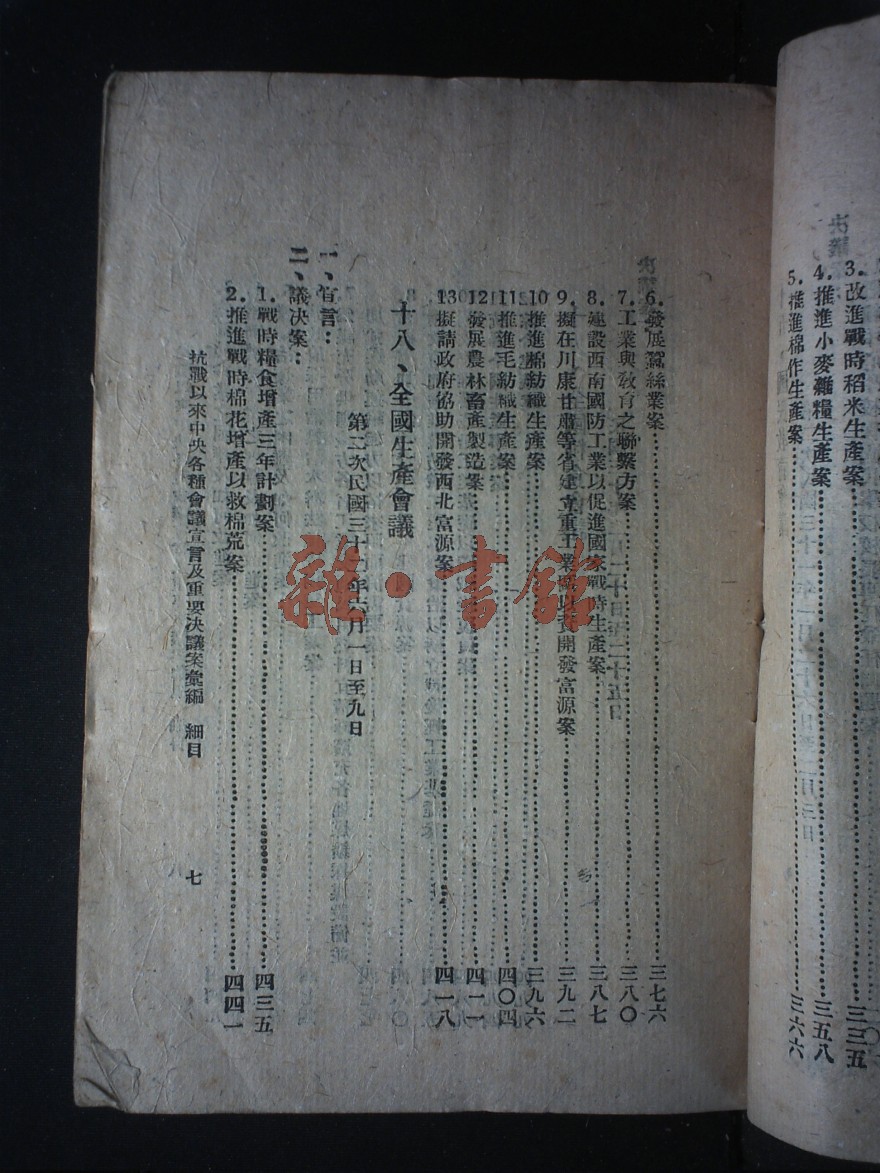 3. 改進戰時稻米生產案………三三五
4. 推進小麥雜糧生產案………三五八
5. 推進棉作生產案………三六六
6. 發展蠶絲業案………三七六
7. 工業與敎育之聯繫方案………三八〇
8. 建設西南國防工業以促進國家戰時生產案………三八七
9. 擬在川康甘肅等省建立重工業區以資開發富源案………三九二
10. 推進棉紡織生產案………三九六
11. 推進毛紡織生產案………四〇四
12. 發展農林畜產製造案………四一一
13. 擬請政府協助開發西北富源案………四一八
十八、全國生產會議
第二次民國三十二年六月一日至九日
一、宣言：
二、議決案：
1. 戰時糧食增產三年計劃案………四三五
2. 推進戰時棉花增產以救棉荒案………四四一
抗戰以來中央各種會議宣言及重要決議案彙編　細目
七
雜·書館